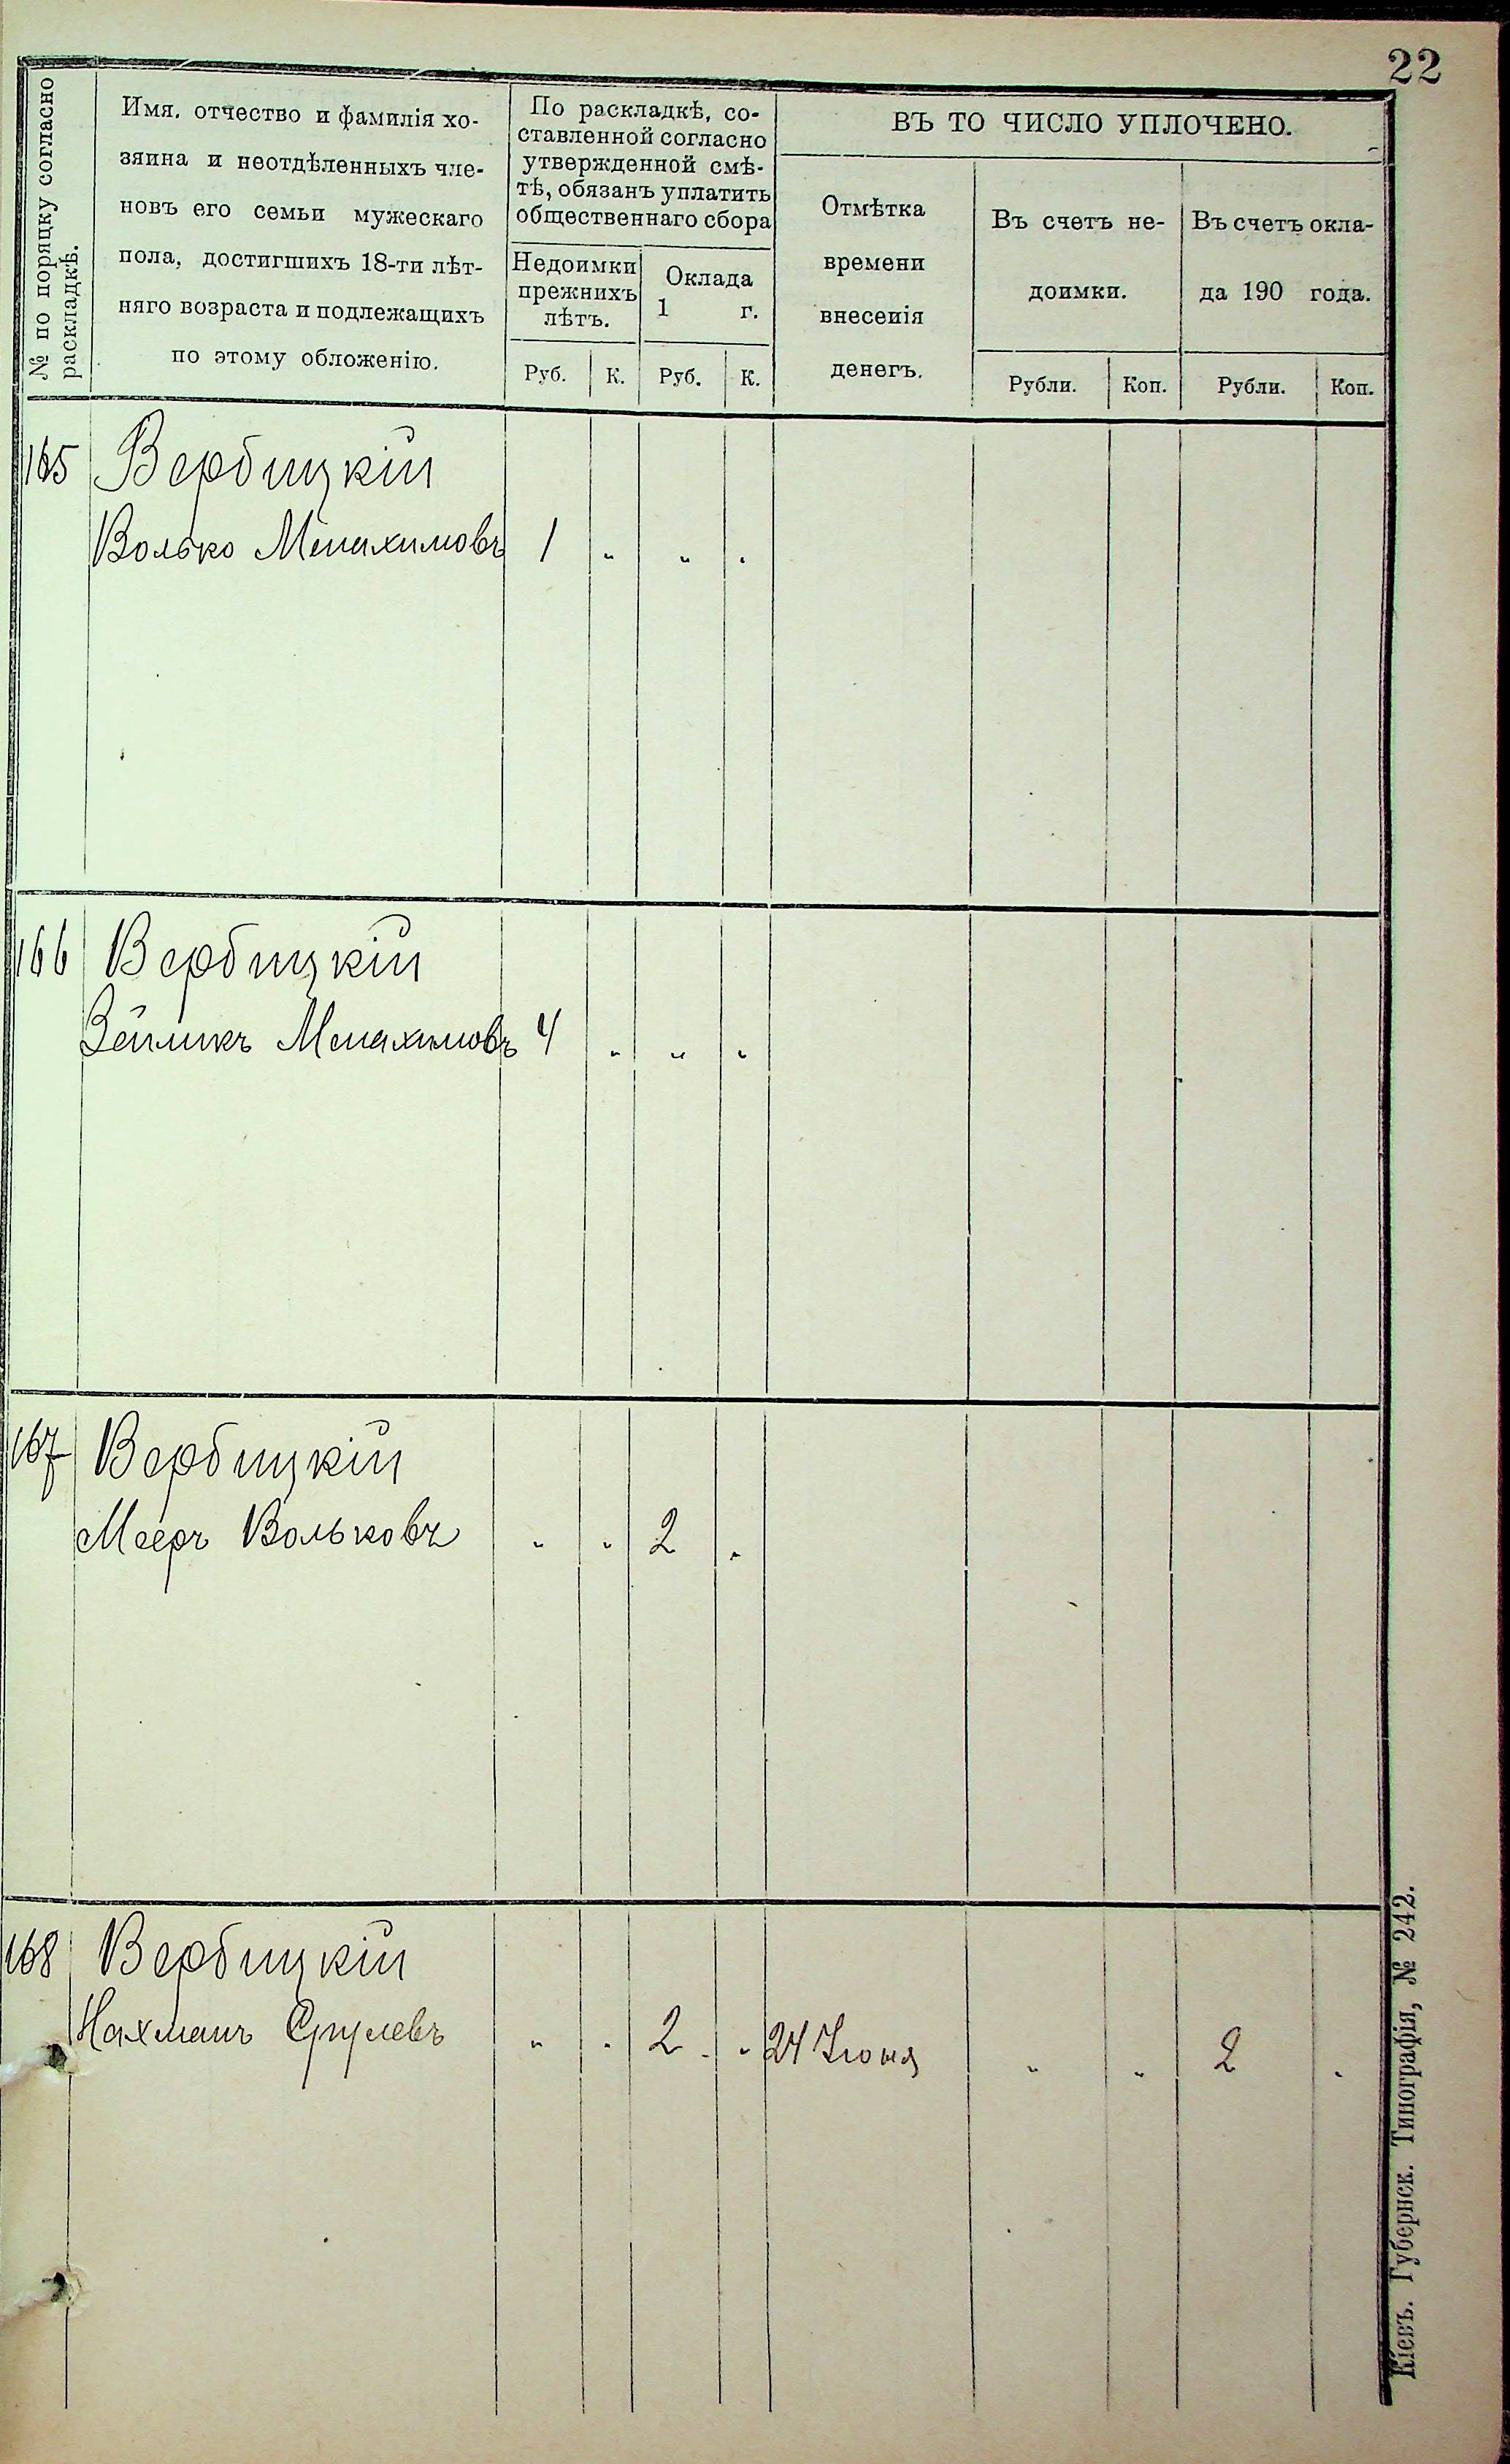 22
№ по порядку согласно
раскладкѣ.
Имя, отчество и фамилія хо-
зяина и неотдѣленныхъ чле-
новъ его семьи мужескаго
пола, достигшихъ 18-ти лѣт-
няго возраста и подлежащихъ
по этому обложенію.
По раскладкѣ, со-
ставленной согласно
утвержденной смѣ-
тѣ, обязанъ уплатить
общественнаго сбора
Недоимки
прежнихъ
лѣтъ.
Оклада
1 г.
Руб. К. Руб. К.
ВЪ ТО ЧИСЛО УПЛОЧЕНО.
Отмѣтка
времени
внесенія
денегъ.
Въ счетъ не-
доимки.
Въ счетъ окла-
да 190 года.
Рубли. Коп. Рубли. Коп.
165 Вербицкій
Волько Менахимовъ 1 „ „ „
166 Вербицкій
Зейликъ Менахимовъ 4 „ „ „
167 Вербицкій
Мееръ Вольковъ „ „ 2 „
168 Вербицкій
Нахманъ Срулевъ „ „ 2 „ 24 Іюня „ „ 2 „
Кіевъ. Губернск. Типографія, № 242.